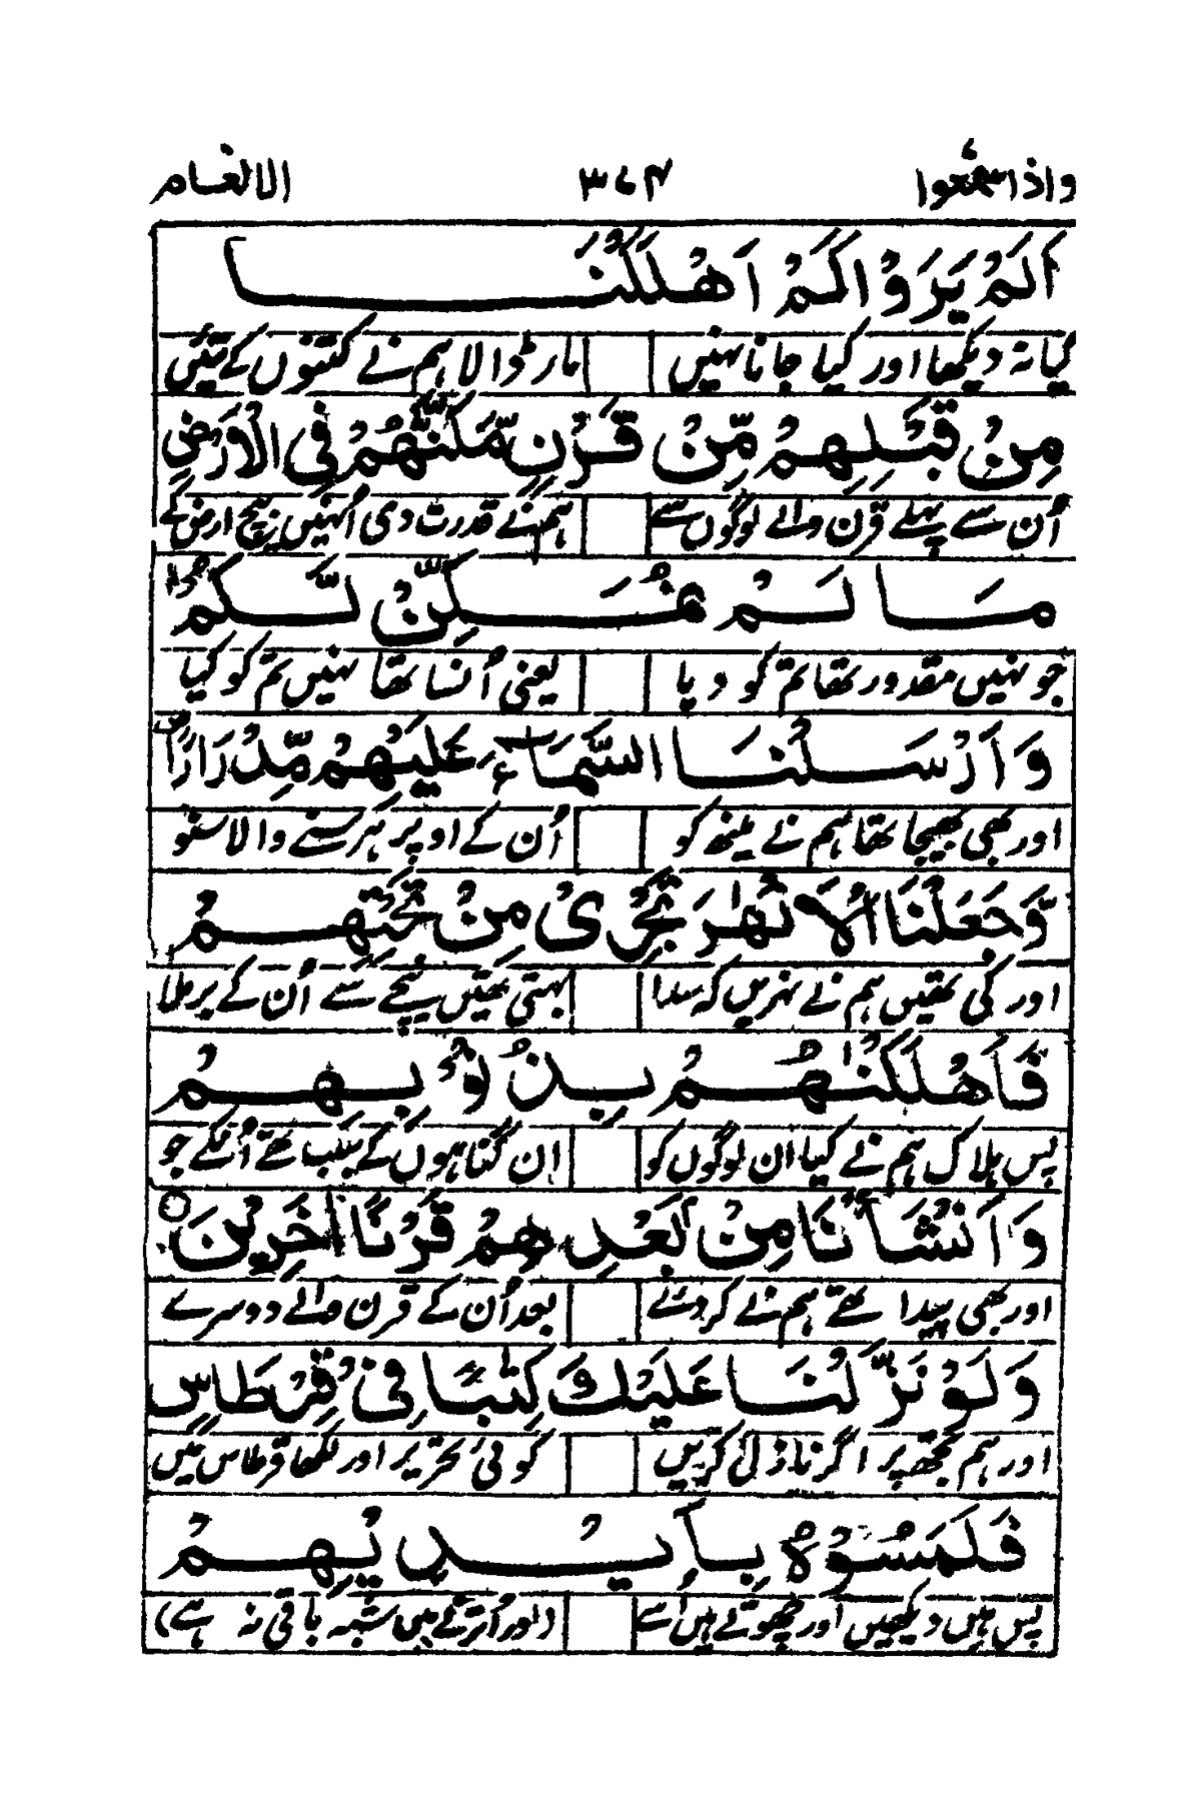 واذا سمعوا ۳۷۴ الانعام
اَلَمْ يَرَوْا كَمْ اَهْلَكْنَا
کیا نہ دیکھا اور کیا جانا نہیں مار ڈالا ہم نے کتنوں کے تئیں
مِنْ قَبْلِهِمْ مِّنْ قَرْنٍ مَّكَّنّٰهُمْ فِى الْاَرْضِ
اُن سے پہلے قرن والے لوگوں سے ہم نے قدرت دی اُنہیں بیچ ارض کے
مَا لَمْ نُمَكِّنْ لَّكُمْ
جو نہیں مقدور تھا تم کو دیا یعنی اُنسا تھا نہیں تم کو کیا
وَاَرْسَلْنَا السَّمَآءَ عَلَيْهِمْ مِّدْرَارًا
اور بھی بھیجا تھا ہم نے مینھ کو اُن کے اوپر برسنے والا سنو
وَّجَعَلْنَا الْاَنْهٰرَ تَجْرِىْ مِنْ تَحْتِهِمْ
اور کی تھیں ہم نے نہریں کہ سدا بہتی تھیں نیچے سے اُن کے برملا
فَاَهْلَكْنٰهُمْ بِذُنُوْبِهِمْ
پس ہلاک ہم نے کیا ان لوگوں کو ان گناہوں کے سبب تھے اُنکے جو
وَاَنْشَاْنَا مِنْۢ بَعْدِهِمْ قَرْنًا اٰخَرِيْنَ
اور بھی پیدا تھے ہم نے کر دئے بعد اُن کے قرن والے دوسرے
وَلَوْ نَزَّلْنَا عَلَيْكَ كِتٰبًا فِىْ قِرْطَاسٍ
اور ہم تجھ پر اگر نازل کریں کوئی تحریر اور لکھا قرطاس میں
فَلَمَسُوْهُ بِاَيْدِيْهِمْ
پس ہیں دیکھیں اور چھوتے ہیں اُسے (اور اُترنے میں شبہ باقی نہ ہے)